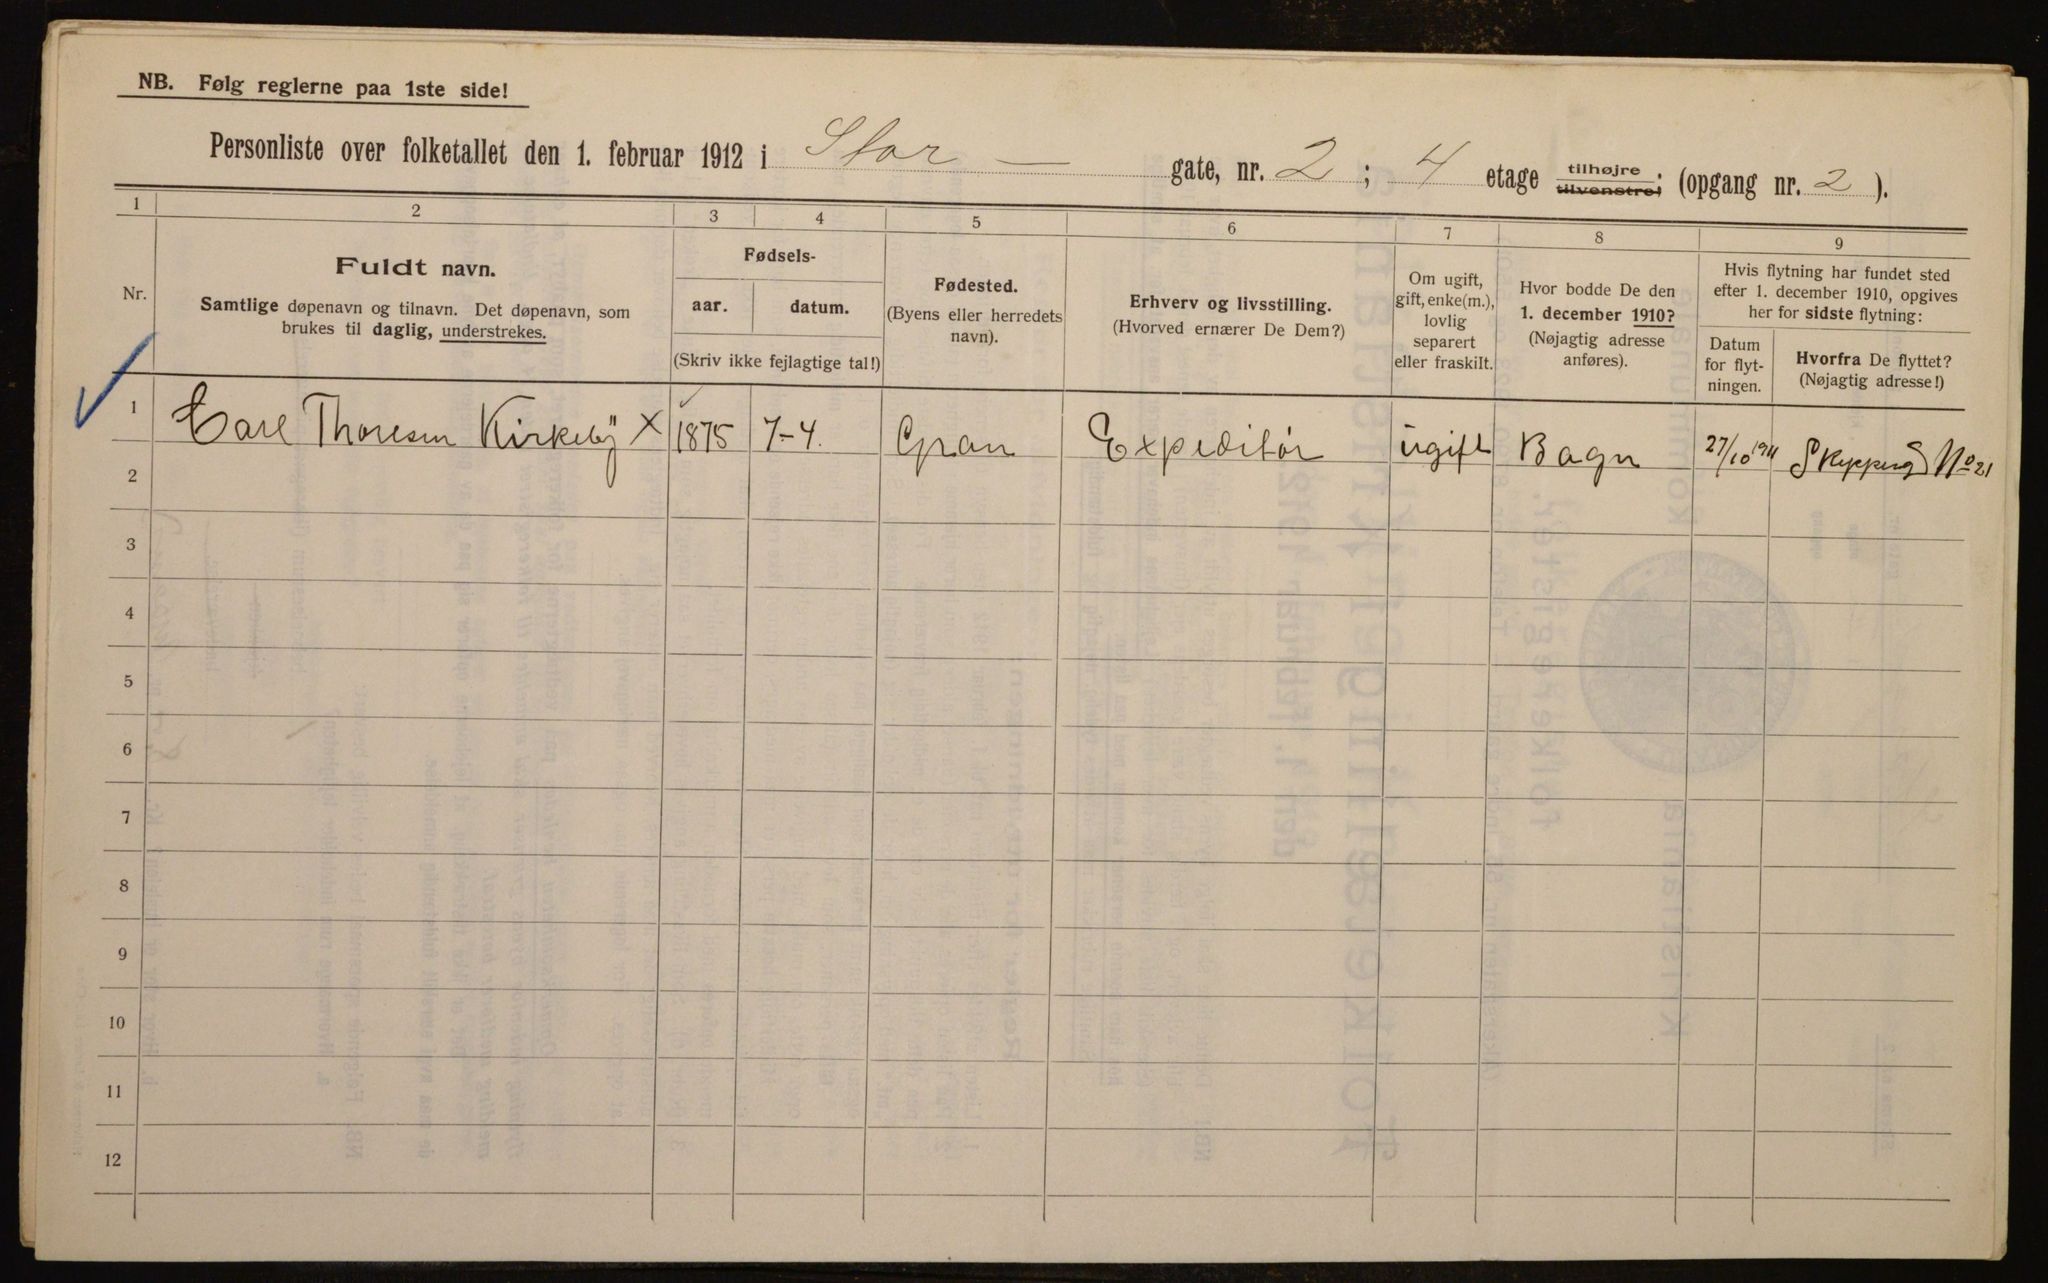 NB. Følg reglerne paa 1ste side!
Personliste over folketallet den 1. februar 1912 i Stor — gate, nr. 2 ; 4 etage tilhøjre, tilvenstre, (opgang nr. 2 ).
1 2 3 4 5 6 7 8 9
Nr.
Fuldt navn.
Samtlige døpenavn og tilnavn. Det døpenavn, som
brukes til daglig, understrekes.
Fødsels-
aar. datum.
(Skriv ikke fejlagtige tal!)
Fødested.
(Byens eller herredets
navn).
Erhverv og livsstilling.
(Hvorved ernærer De Dem?)
Om ugift,
gift, enke(m.),
lovlig
separert
eller fraskilt.
Hvor bodde De den
1. december 1910?
(Nøjagtig adresse
anføres).
Hvis flytning har fundet sted
efter 1. december 1910, opgives
her for sidste flytning:
Datum
for flyt-
ningen.
Hvorfra De flyttet?
(Nøjagtig adresse!)
1 Carl Thoresen Kirkeby X 1875 7-4. Gran Expeditør ugift Bagn 27/10 1911 Skipperg No 21
2
3
4
5
6
7
8
9
10
11
12